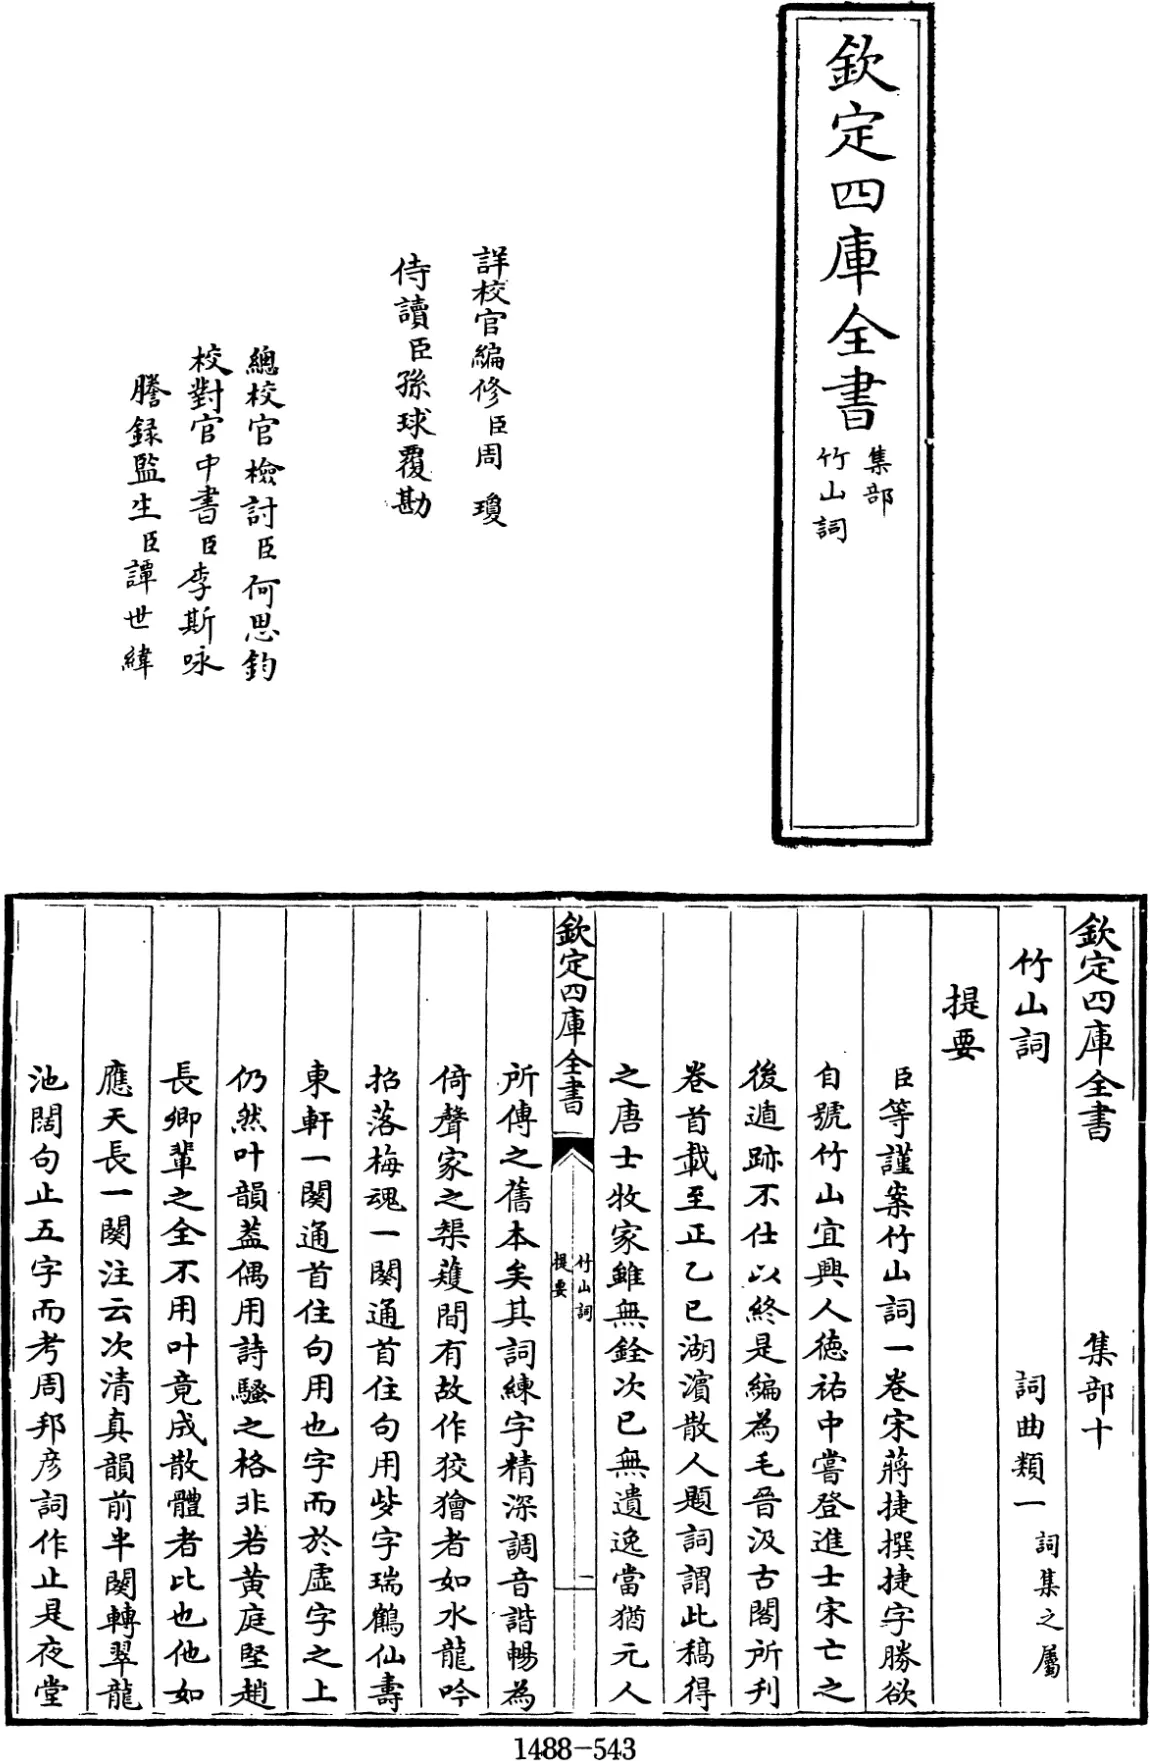 欽定四庫全書
集部
竹山詞
詳校官編修臣周瓊
侍讀臣孫球覆勘
總校官檢討臣何思鈞
校對官中書臣李斯咏
謄録監生臣譚世緯
欽定四庫全書 集部十
竹山詞 詞曲類一 詞集之屬
提要
臣等謹案竹山詞一卷宋蔣捷撰捷字勝欲
自號竹山宜興人德祐中嘗登進士宋亡之
後遁跡不仕以終是編為毛晉汲古閣所刊
卷首載至正乙巳湖濵散人題詞謂此稿得
之唐士牧家雖無銓次已無遺逸當猶元人
欽定四庫全書
竹山詞
提要
一
所傳之舊本矣其詞練字精深調音諧暢為
倚聲家之榘矱間有故作狡獪者如水龍吟
招落梅魂一闋通首住句用些字瑞鶴仙壽
東軒一闋通首住句用也字而於虛字之上
仍然叶韻葢偶用詩騷之格非若黄庭堅趙
長卿輩之全不用叶竟成散體者比也他如
應天長一闋注云次清真韻前半闋轉翠龍
池闊句止五字而考周邦彦詞作止是夜堂
1488-543